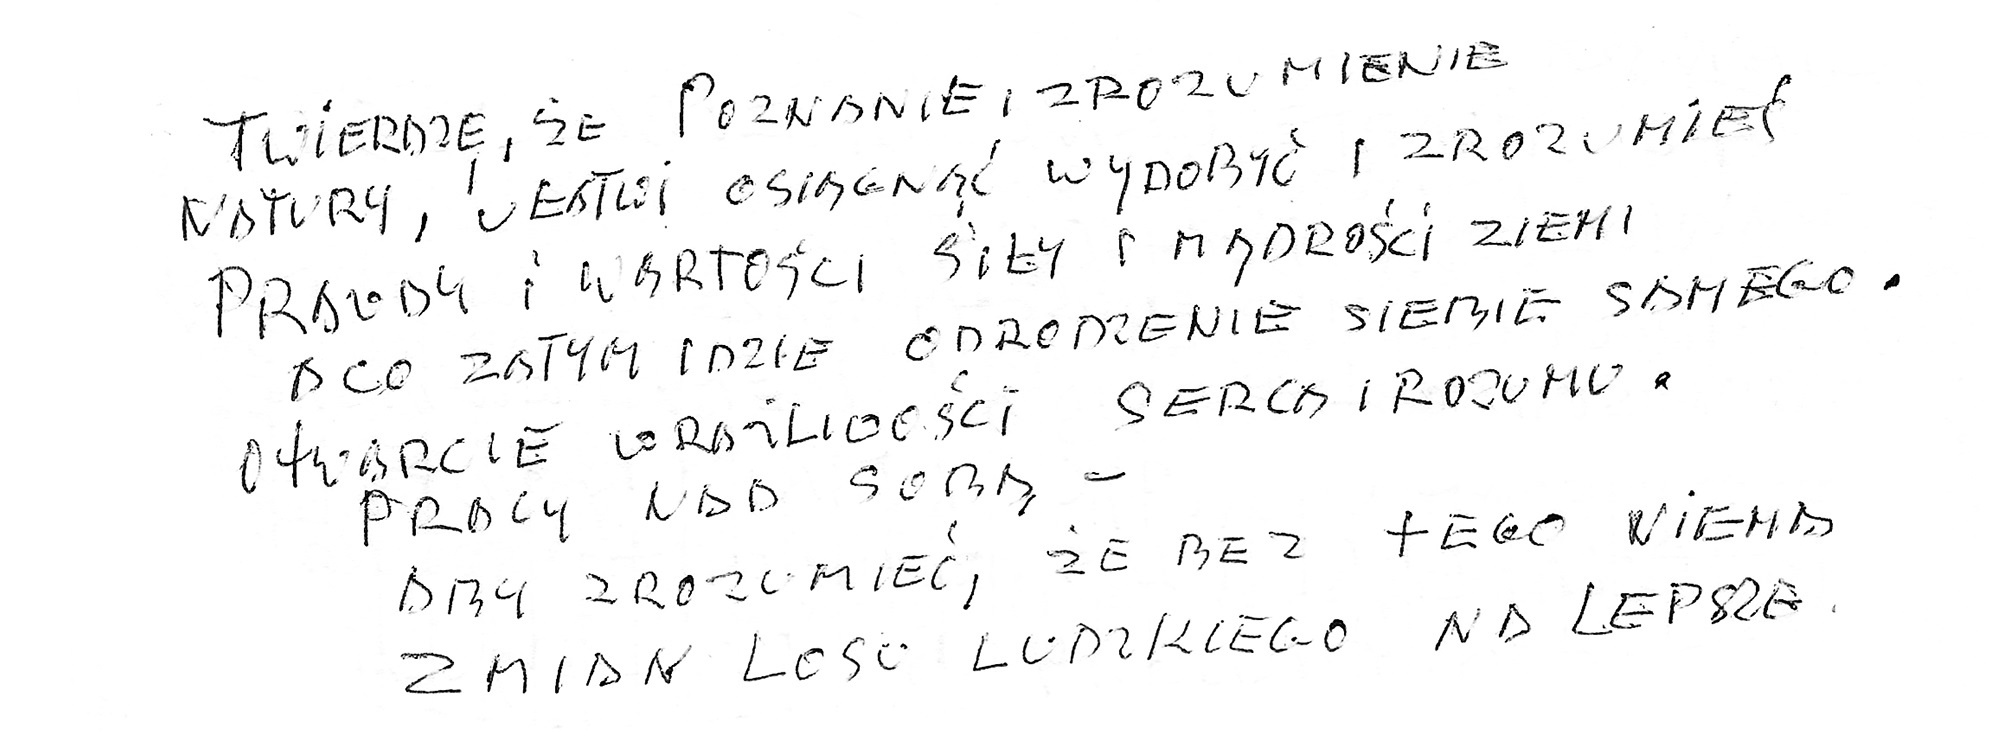 TWIERDZĘ, ŻE POZNANIE I ZROZUMIENIE
NATURY, UŁATWI OSIĄGNĄĆ WYDOBYĆ I ZROZUMIEĆ
PRAWDY I WARTOŚCI SIŁY I MĄDROŚCI ZIEMI
A CO ZATYM IDZIE ODRODZENIE SIEBIE SAMEGO.
OTWARCIE WRAŻLIWOŚCI SERCA I ROZUMU.
PRACY NAD SOBĄ –
ABY ZROZUMIEĆ, ŻE BEZ TEGO NIEMA
ZMIAN LOSU LUDZKIEGO NA LEPSZE.